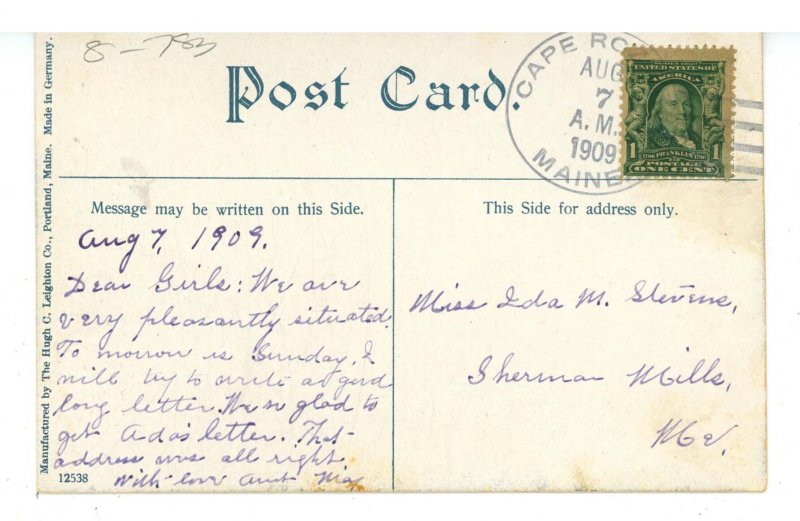 8-783
Post Card.
CAPE RO
AUG
7
A.M.
1909
MAINE
SERIES 1902
UNITED STATES OF
AMERICA
1706 FRANKLIN 1790
1 POSTAGE 1
ONE CENT
Manufactured by The Hugh C. Leighton Co., Portland, Maine. Made in Germany.
Message may be written on this Side.
Aug 7, 1909.
Dear Girls: We are
very pleasantly situated.
To morrow is Sunday. I
will try to write a good
long letter. We so glad to
get Ada's letter. That
address was all right.
With love Aunt
12538
This Side for address only.
Miss Ida M. Stevens,
Sherman Mills,
Me.